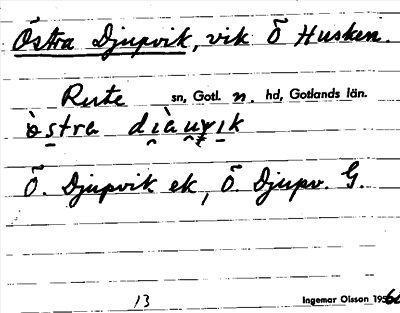 Östra Djupvik, vik Ö Husken.
Rute sn, Gotl. n. hd, Gotlands län.
Ö. Djupvik ek, Ö. Djupv. G.
13 Ingemar Olsson 1960